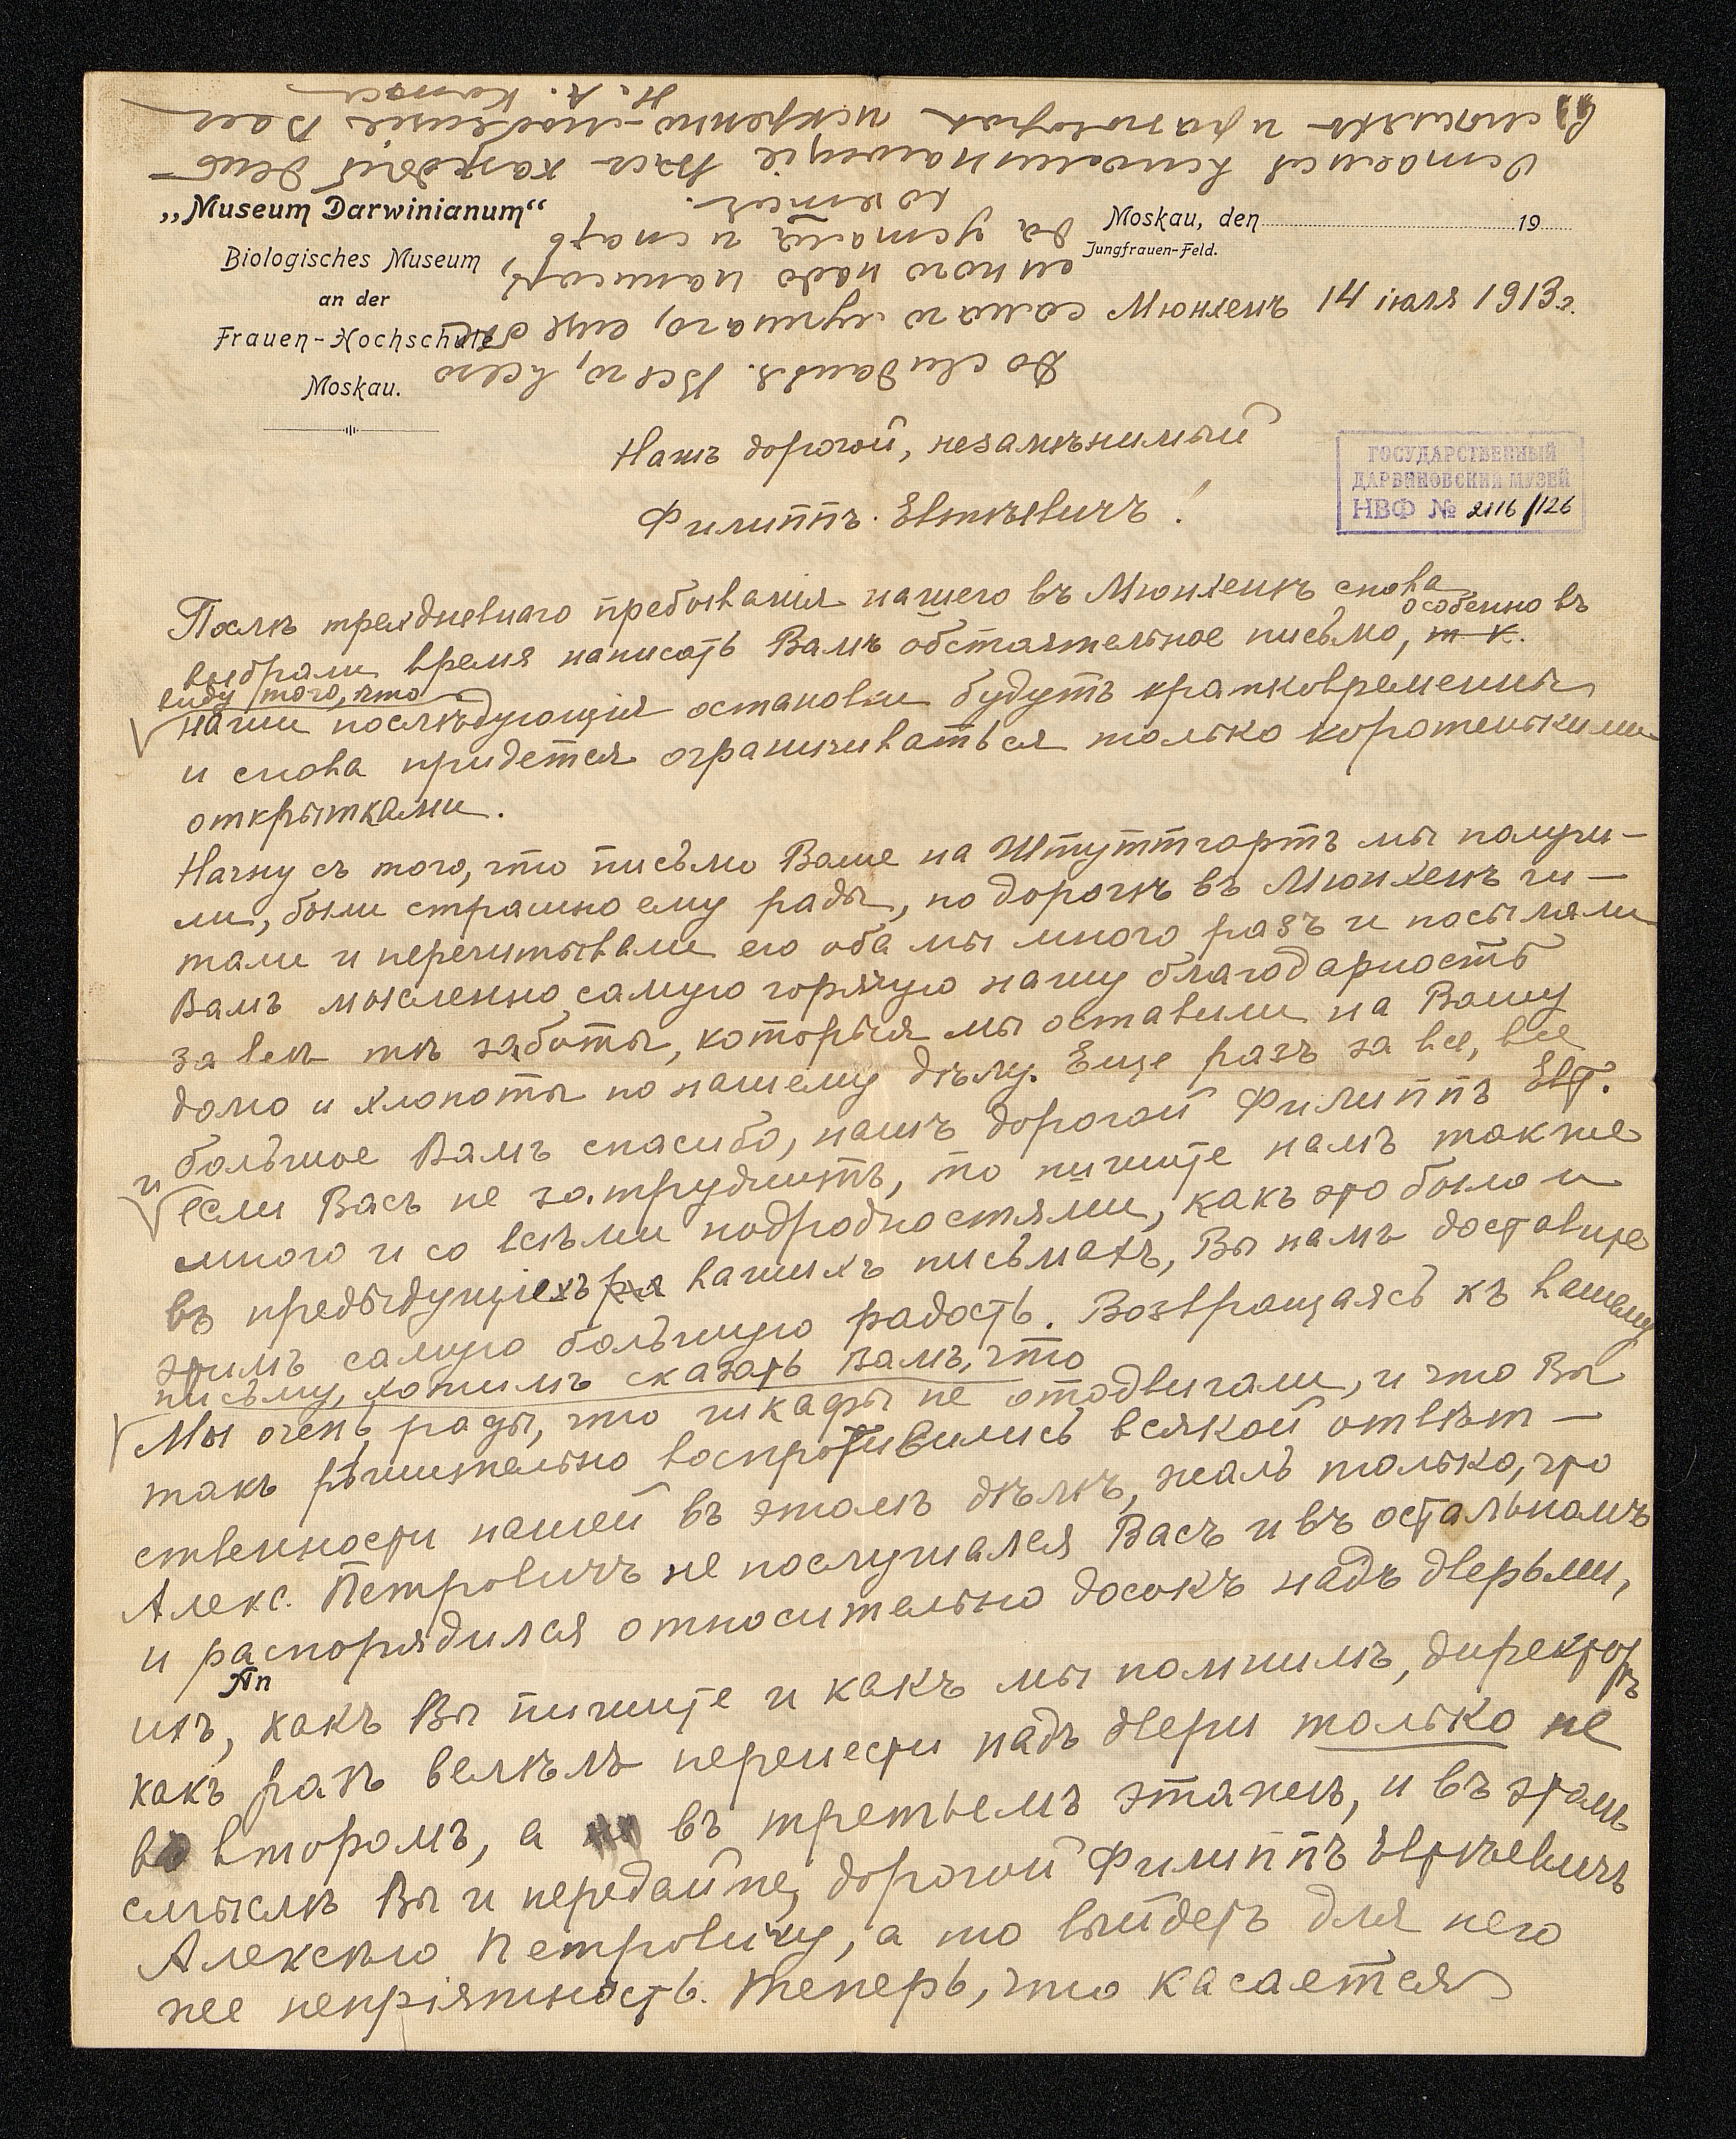 „Museum Darwinianum“
Biologisches Museum
an der
Frauen-Hochschule
Moskau.
Moskau, den 19
Jungfrauen-Feld.
Мюнхенъ 14 іюля 1913 г.
ГОСУДАРСТВЕННЫЙ
ДАРВИНОВСКИЙ МУЗЕЙ
НВФ № 2116/126
Нашъ дорогой, незамѣнимый
Филиппъ Евтѣевичъ!
Послѣ трехдневнаго пребыванія нашего въ Мюнхенѣ снова
выбрали время написать Вамъ обстоятельное письмо, т к. особенно въ
виду того, что
наши послѣдующія остановки будутъ кратковременны
и снова придется ограничиваться только коротенькими
открытками.
Начну съ того, что письмо Ваше на Штуттгартъ мы получи-
ли, были страшно ему рады, по дорогѣ въ Мюнхенъ чи-
тали и перечитывали его оба мы много разъ и посылали
Вамъ мысленно самую горячую нашу благодарность
за всѣ тѣ заботы, которыя мы оставили на Вашу
долю и хлопоты по нашему дѣлу. Еще разъ за все, все
большое Вамъ спасибо, нашъ дорогой Филиппъ Евт.
и если Васъ не затруднитъ, то пишите намъ также
много и со всѣми подробностями, какъ это было и
въ предыдущихъ ра вашихъ письмахъ, Вы намъ доставите
этимъ самую большую радость. Возвращаясь къ вашему
письму, хотимъ сказать Вамъ, что
Мы очень рады, что шкафы не отодвигали, и что Вы
такъ рѣшительно воспротивились всякой отвѣт-
ственности нашей въ этомъ дѣлѣ, жаль только, что
Алекс. Петровичъ не послушался Васъ и въ остальномъ
и распорядился относительно досокъ надъ дверьми,
ихъ, какъ Вы пишите и какъ мы помнимъ, директоръ
какъ разъ велѣлъ перенести надъ двери только не
во второмъ, а въ третьемъ этажѣ, и въ этомъ
смыслѣ Вы и передайте, дорогой Филиппъ Евтѣевичъ
Алексѣю Петровичу, а то выйдетъ для него
же непріятность. Теперь, что касается
До свиданья. Всего, всего
самаго лучшаго, еще
много надо написать,
да устала и спать
хочется.
Остаемся вспоминающіе Васъ каждый день
искренно-любящіе Васъ
Н. А. Котсъ